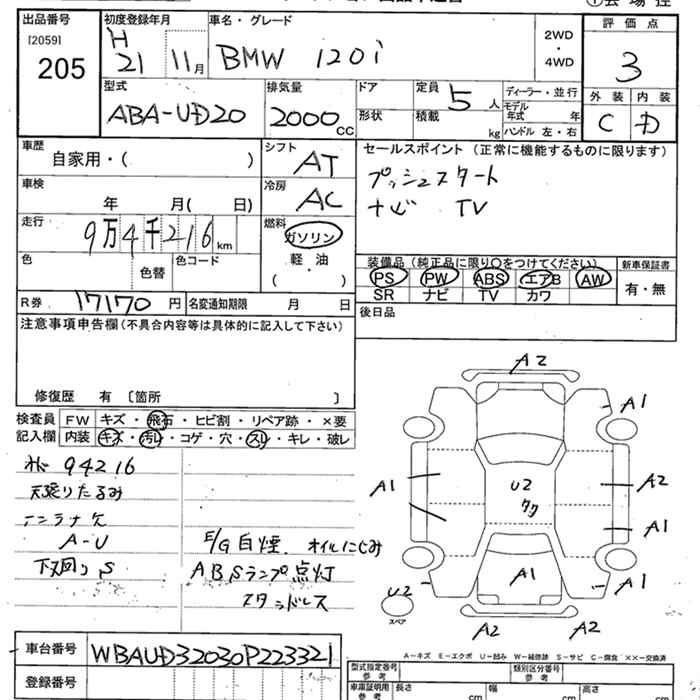 出品番号 初度登録年月 車名・グレード 2WD・4WD 評価点
[2059] 205 H21 11月 BMW 120i 3
型式 排気量 ドア 定員 5人 ディーラー・並行 外装 内装
ABA-UD20 2000cc 形状 積載 kg モデル年式 年 C D
ハンドル 左・右
車歴 シフト セールスポイント(正常に機能するものに限ります)
自家用・( ) AT プッシュスタート
車検 冷房 ナビ TV
年 月( 日) AC
走行 燃料
9万4千216km ガソリン
色 色替 色コード 軽・油 ( )
装備品(純正品に限り〇をつけてください) 新車保証書
PS PW ABS エアB AW 有・無
SR ナビ TV カワ
R券 17170円 名変通知期限 月 日 後日品
注意事項申告欄(不具合内容等は具体的に記入して下さい)
修復歴 有 〔箇所 〕
検査員 FW キズ・飛石・ヒビ割・リペア跡・×要
記入欄 内装 キズ・汚レ・コゲ・穴・スレ・キレ・破レ
94216
天張りたるみ
アンテナ欠
A-U
下回りS
E/G白煙. オイルにじみ
ABSランプ点灯
スタッドレス
A2
A1
A1 U2 A2
A1
A1 A1
U2
スペア
A2 A2
A-キズ E-エクボ U-凹み W-補修跡 S-サビ C-腐食 ××-交換済
車台番号 WBAUD32030P223321
登録番号
型式指定番号 参考 類別区分番号 参考
車庫証明用 参考 長さ cm 幅 cm 高さ cm